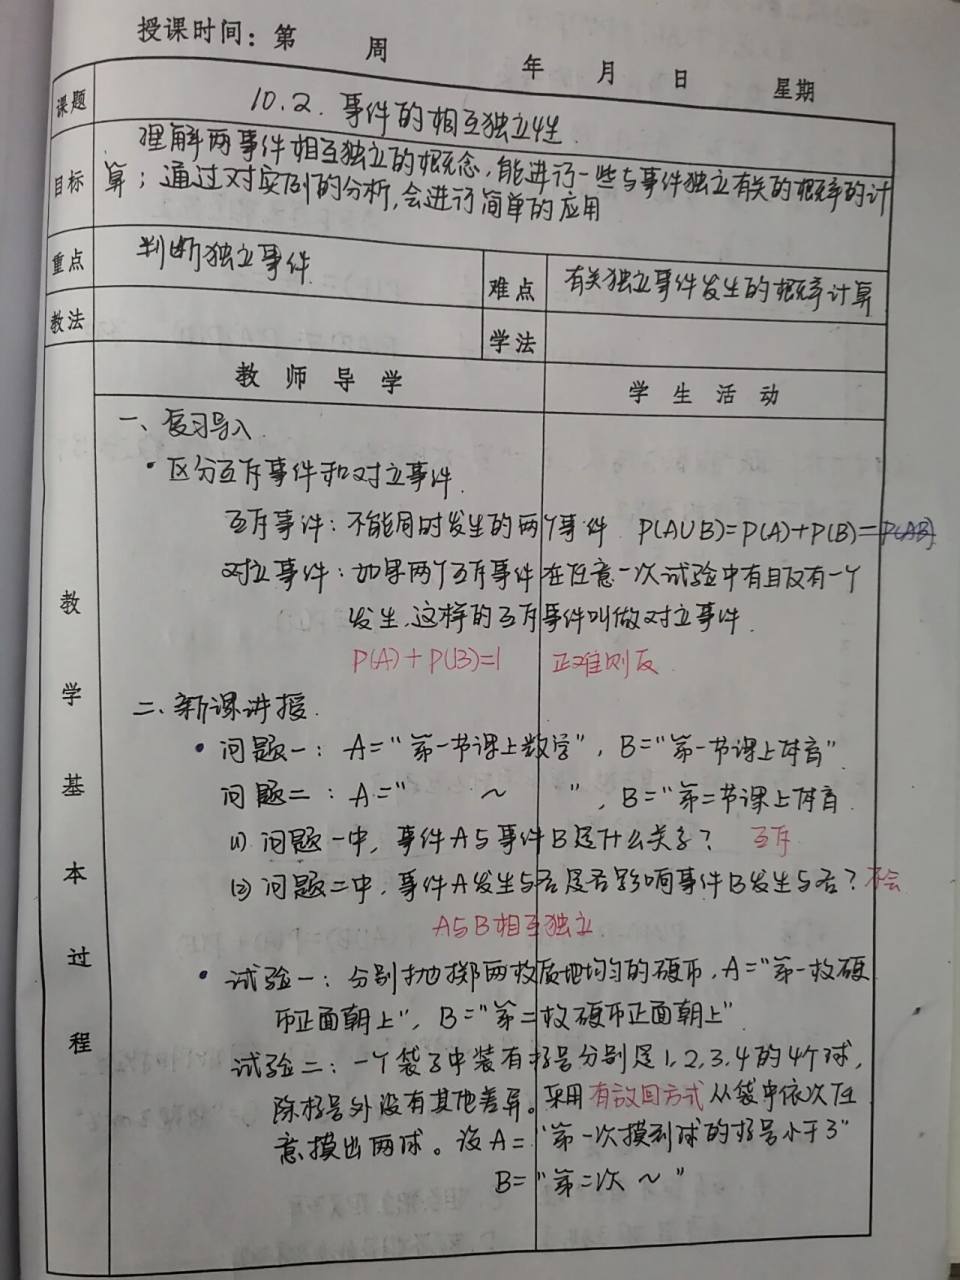 授课时间：第 周 年 月 日 星期
课题 10.2. 事件的相互独立性.
目标 理解两事件相互独立的概念，能进行一些与事件独立有关的概率的计
算；通过对实例的分析，会进行简单的应用
重点 判断独立事件. 难点 有关独立事件发生的概率计算
教法 学法
教师导学 学生活动
教学基本过程
一、复习导入.
· 区分互斥事件和对立事件.
互斥事件：不能同时发生的两个事件. P(A∪B)=P(A)+P(B)=P(AB)
对立事件：如果两个互斥事件在任意一次试验中有且仅有一个
发生，这样的互斥事件叫做对立事件.
P(A)+P(B)=1 正难则反
二、新课讲授.
· 问题一：A=“第一节课上数学”，B=“第一节课上体育”.
问题二：A=“ ～ ”，B=“第二节课上体育.
(1) 问题一中，事件A与事件B是什么关系？ 互斥
(2) 问题二中，事件A发生与否是否影响事件B发生与否？不会
A与B相互独立
· 试验一：分别抛掷两枚质地均匀的硬币，A=“第一枚硬
币正面朝上”，B=“第二枚硬币正面朝上”
试验二：一个袋子中装有标号分别是1,2,3,4的4个球，
除标号外没有其他差异。采用有放回方式从袋中依次任
意摸出两球。设A=“第一次摸到球的标号小于3”
B=“第二次～”